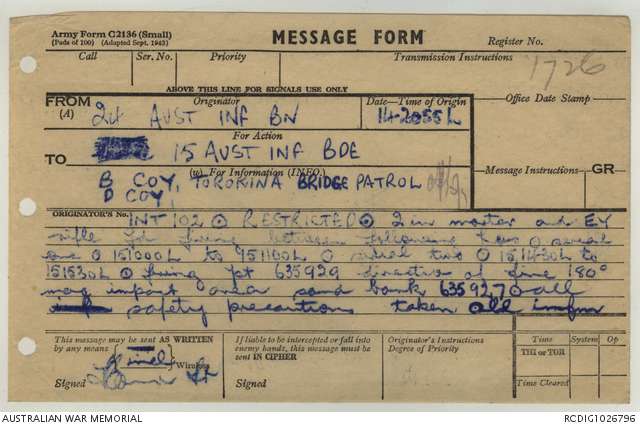 Army Form C2136 (Small)
(Pads of 100) (Adapted Sept. 1943)
MESSAGE FORM
Register No.
Call
Ser. No.
Priority
Transmission Instructions
1726
ABOVE THIS LINE FOR SIGNALS USE ONLY
FROM
(A)
Originator
24 AUST INF BN
Date—Time of Origin
142055L
Office Date Stamp
For Action
TO
15 AUST INF BDE
(w) For Information (INFO.)
Message Instructions
GR
B COY, TOROKINA BRIDGE PATROL
D COY,
ORIGINATOR'S No.
INT 102 O RESTRICTED O 2 in mortar and EY
rifle firing between following hrs O serial
one O 151000L to 151100L O serial two O 151430L to
151530L O firing pt 635929 direction of fire 180°
mag impact area sand bank 635927 O all
safety precautions taken all infm
This message may be sent AS WRITTEN
by any means
Wireless
Signed
If liable to be intercepted or fall into
enemy hands, this message must be
sent IN CIPHER
Signed
Originator's Instructions
Degree of Priority
Time
System
Op
THI or TOR
Time Cleared
AUSTRALIAN WAR MEMORIAL
RCDIG1026796